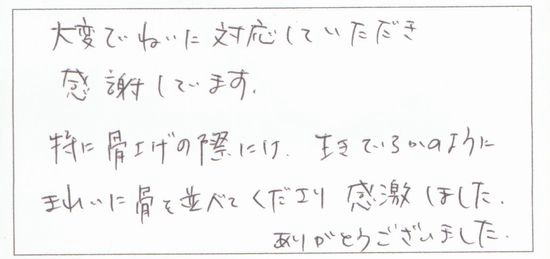 大変ていねいに対応していただき
感謝しています.
特に骨上げの際には、生きているかのように
きれいに骨を並べてくださり感激しました.
ありがとうございました.